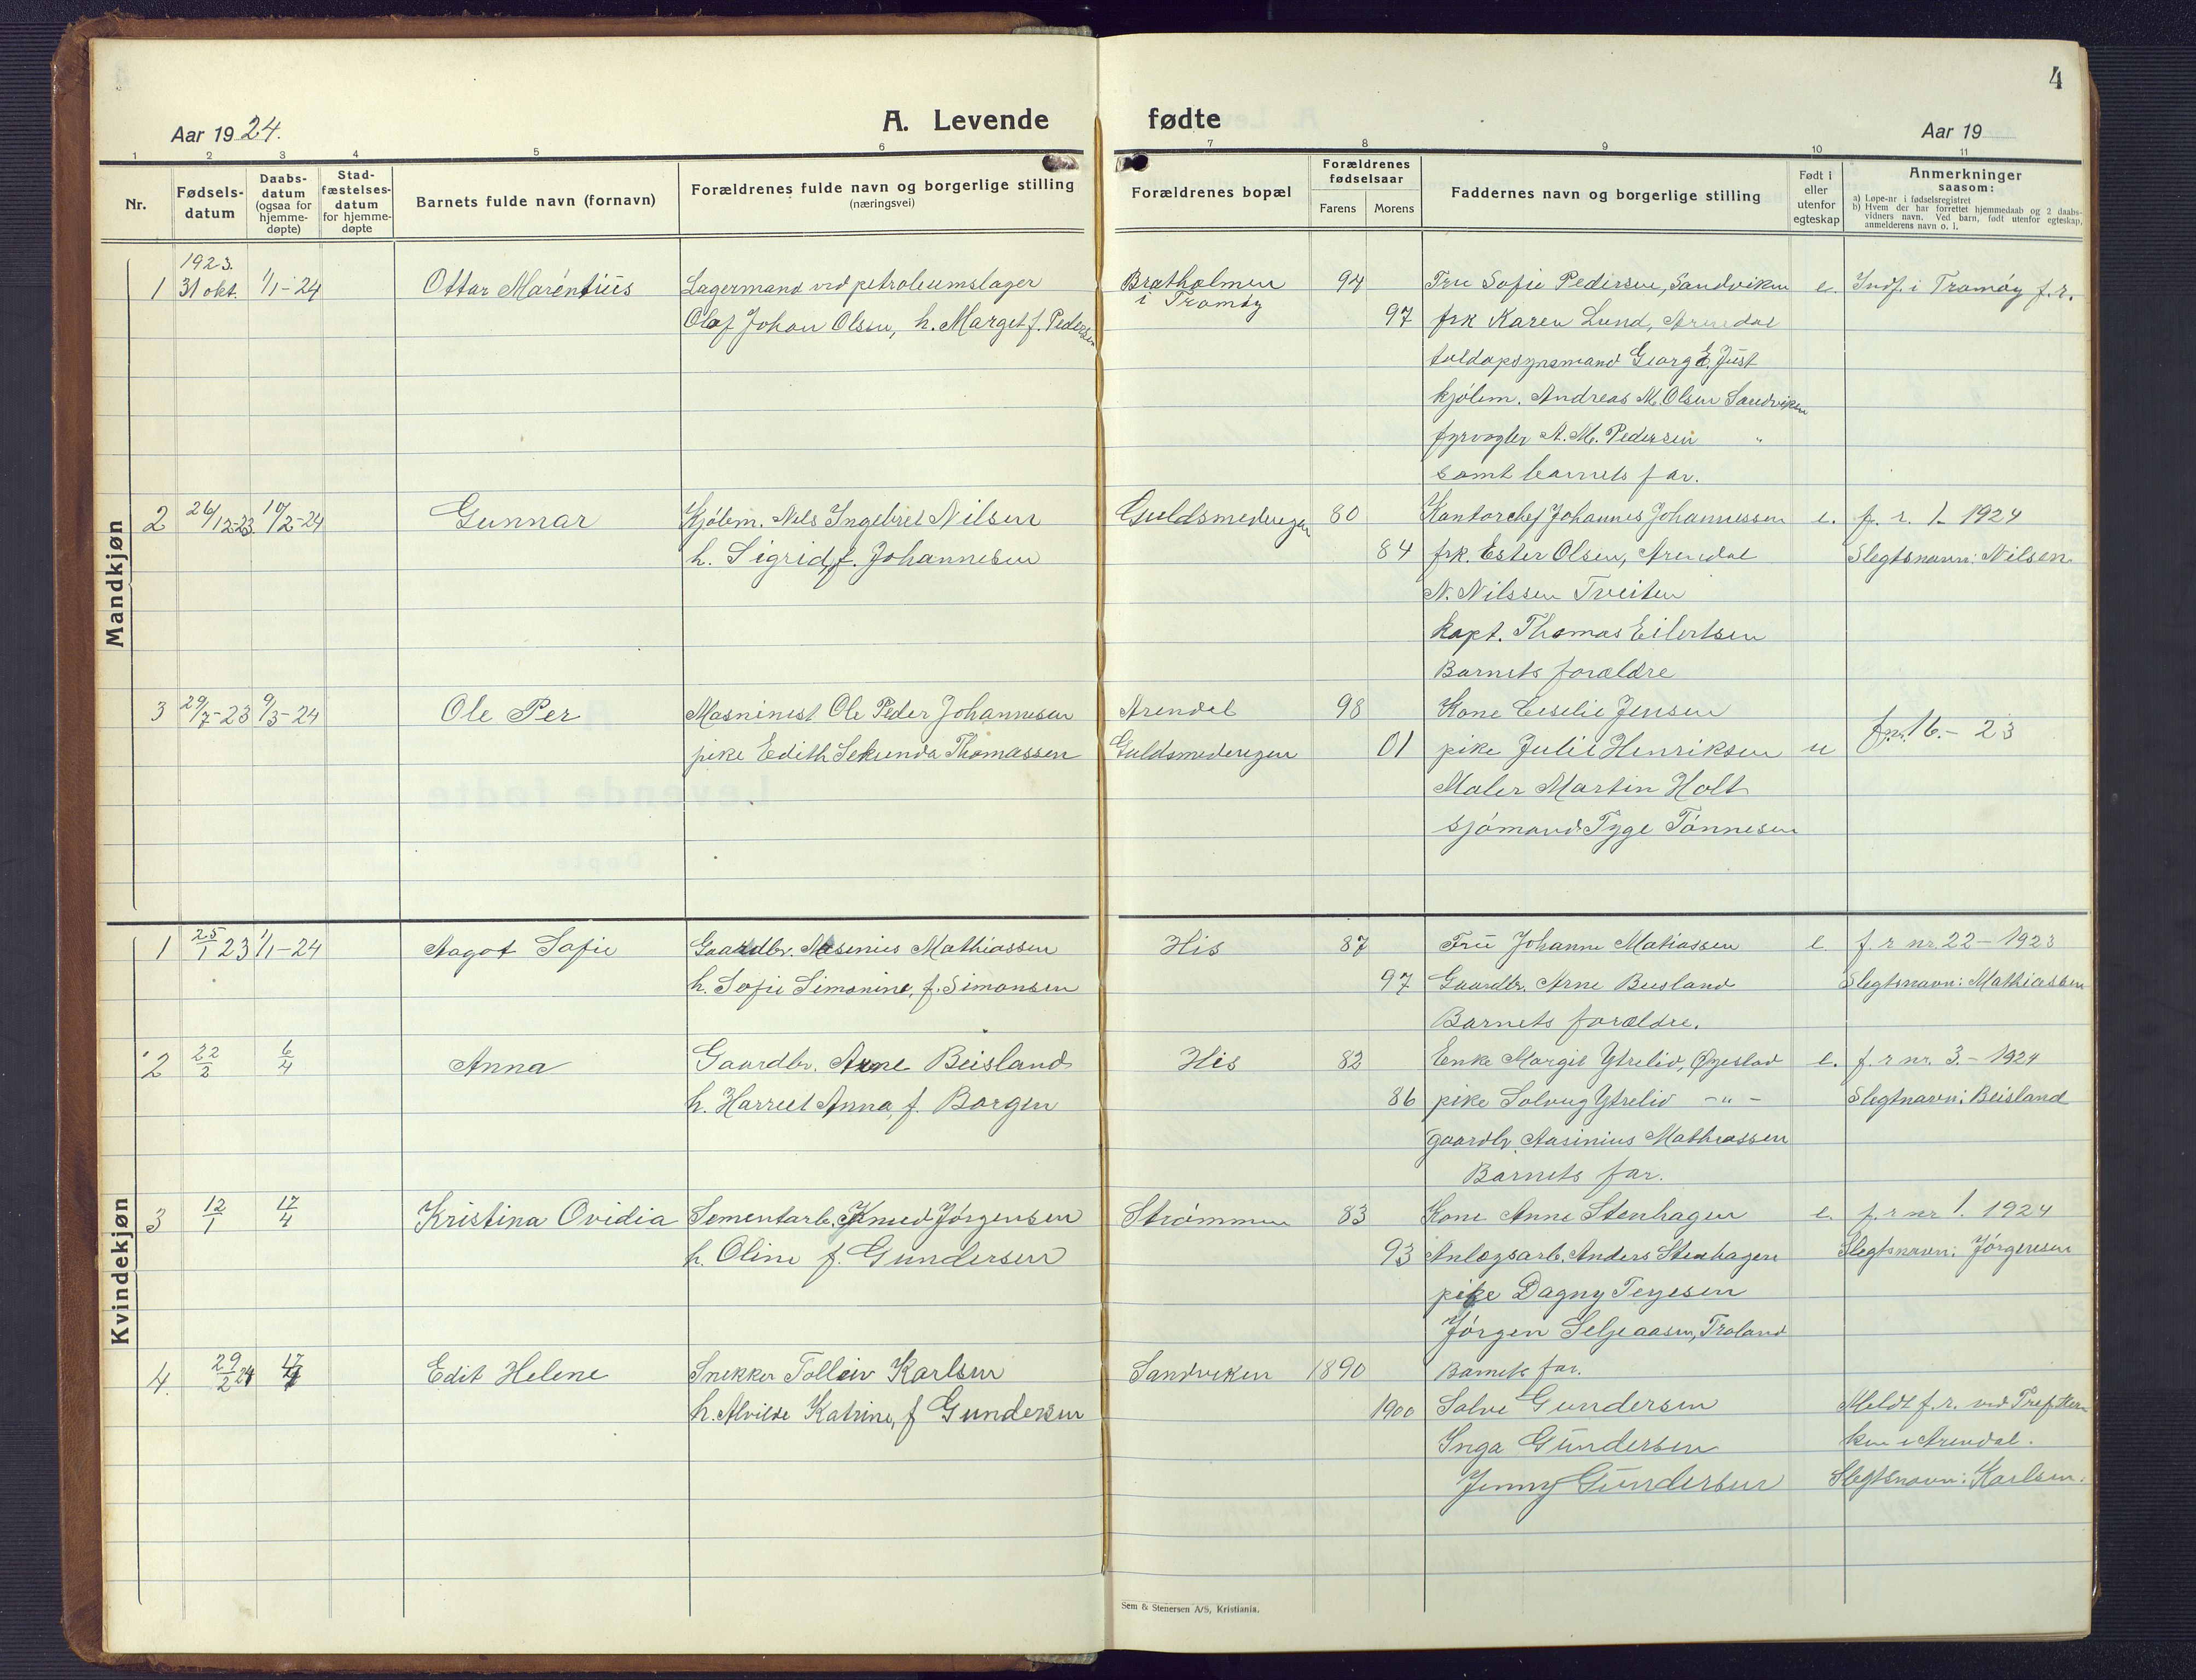 4
Aar 1924.
A. Levende fødte
Aar 19
1 2 3 4 5 6 7 8 9 10 11
Nr.
Fødsels-
datum
Daabs-
datum
(ogsaa for
hjemme-
døpte)
Stad-
fæstelses-
datum
for hjemme-
døpte
Barnets fulde navn (fornavn)
Forældrenes fulde navn og borgerlige stilling
(næringsvei)
Forældrenes bopæl
Forældrenes
fødselsaar
Farens Morens
Faddernes navn og borgerlige stilling
Født i
eller
utenfor
egteskap
Anmerkninger
saasom:
a) Løpe-nr i fødselsregistret
b) Hvem der har forrettet hjemmedaab og 2 daabs-
vidners navn. Ved barn, født utenfor egteskap,
anmelderens navn o. l.
Mandkjøn
1923.
1 31 okt. 1/1-24 Ottar Marentius Lagermand ved petroleumslager Bratholmen 94 Fru Sofie Pedersen, Sandviken e. Indf. i Tromøy f.r.
Olaf Johan Olsen, h. Margit f. Pedersen i Tromøy 97 frk Karen Lund, Arendal
toldopsynsmand Georg E. Just
kjølem. Andreas M. Olsen Sandviken
fyrvogter A. M. Pedersen "
samt barnets far.
2 26/12-23. 10/2-24 Gunnar Kjølem. Nils Ingebret Nilsen Guldsmedengen 80 Kontorchef Johannes Johannessen e. f. r. 1. 1924
h. Sigrid, f. Johannesen 84 frk. Ester Olsen, Arendal Slegtsnavn: Nilsen
N. Nilssen Tveiten
kapt. Thomas Eilertsen
Barnets forældre
3 29/7-23 9/3-24 Ole Per Masninist Ole Peder Johannesen Arendal 98 Kone Ceselie Jensen f.nr. 16.- 23
pike Edith Sekunda Thomassen Guldsmedengen 01 pike Julie Henriksen u
Maler Martin Holt
sjømand Tyge Tønnesen
Kvindekjøn
1 25/1 23 1/1-24 Aagot Sofie Gaardbr. Asenius Mathiassen His 87 Fru Johanne Matiassen e. f. r nr. 22-1923
h. Sofie Simonine, f. Simonsen 97 Gaardbr. Arne Beisland Slegtsnavn: Mathiassen
Barnets forældre.
2 22/2 6/4 Anna Gaardbr. Arne Beisland His 82 Enke Margit Ytrelid, Øyestad e. f. r nr. 3.-1924
h. Harriet Anna, f. Borgen 86 pike Solveig Ytrelid -"- Slegtnavn: Beisland
gaardbr. Aasinius Mathiassen
Barnets far.
3 12/1 17/4 Kristina Ovidia Sementarb. Knud Jørgensen Strømmen 83 Kone Anne Stenhagen e. f. r nr 1. 1924
h. Oline f. Gundersen 93 Anlægsarb. Anders Stenhagen Slegtsnavn: Jørgensen
pike Dagny Terjesen
Jørgen Seljeaasen, Traland
4. 29/2 24 17/4 Edit Helene Snekker Tolleiv Karlsen Sandviken 1890 Barnets far.
h. Alvilde Katrine, f Gundersen 1900 Salve Gundersen Meldt f. r. ved Tref.
Inga Gundersen ken i Arendal.
Jenny Gundersen Slegtsnavn: Karlsen.
Sem & Stenersen A/S, Kristiania.